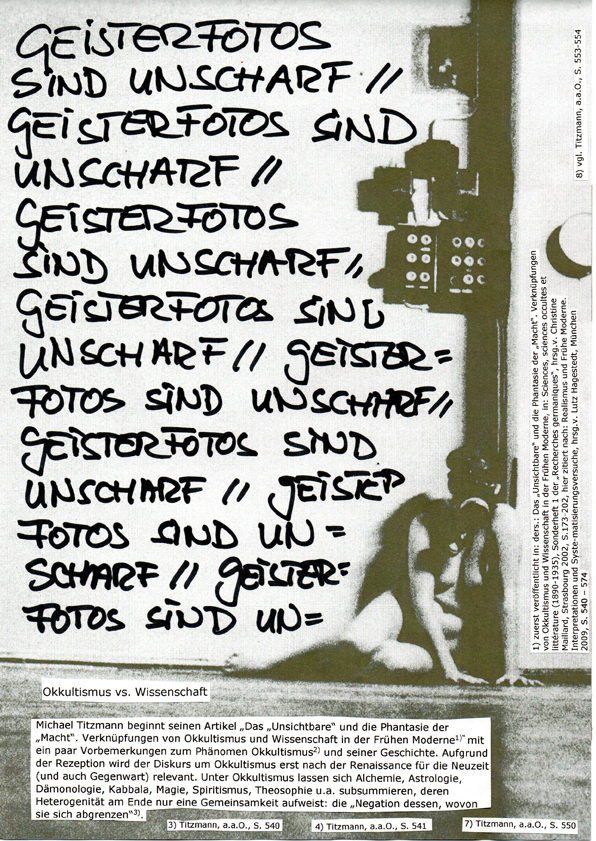 GEISTERFOTOS
SIND UNSCHARF //
GEISTERFOTOS SIND
UNSCHARF //
GEISTERFOTOS
SIND UNSCHARF //
GEISTERFOTOS SIND
UNSCHARF // GEISTER=
FOTOS SIND UNSCHARF //
GEISTERFOTOS SIND
UNSCHARF // GEISTER
FOTOS SIND UN=
SCHARF // GEISTER=
FOTOS SIND UN=
8) vgl. Titzmann, a.a.O., S. 553-554
1) zuerst veröffentlicht in: ders.: Das „Unsichtbare" und die Phantasie der „Macht". Verknüpfungen
von Okkultismus und Wissenschaft in der Frühen Moderne, in: Sciences, sciences occultes et
littérature (1890-1935), Sonderheft 1 der „Recherches germaniques", hrsg.v. Christine
Maillard, Strasbourg 2002, S.173-202, hier zitiert nach: Realismus und Frühe Moderne.
Interpretationen und Syste-matisierungsversuche, hrsg.v. Lutz Hagestedt, München
2009, S. 540 – 574
Okkultismus vs. Wissenschaft
Michael Titzmann beginnt seinen Artikel „Das „Unsichtbare" und die Phantasie der
„Macht". Verknüpfungen von Okkultismus und Wissenschaft in der Frühen Moderne1)" mit
ein paar Vorbemerkungen zum Phänomen Okkultismus2) und seiner Geschichte. Aufgrund
der Rezeption wird der Diskurs um Okkultismus erst nach der Renaissance für die Neuzeit
(und auch Gegenwart) relevant. Unter Okkultismus lassen sich Alchemie, Astrologie,
Dämonologie, Kabbala, Magie, Spiritismus, Theosophie u.a. subsummieren, deren
Heterogenität am Ende nur eine Gemeinsamkeit aufweist: die „Negation dessen, wovon
sie sich abgrenzen"3).
3) Titzmann, a.a.O., S. 540
4) Titzmann, a.a.O., S. 541
7) Titzmann, a.a.O., S. 550